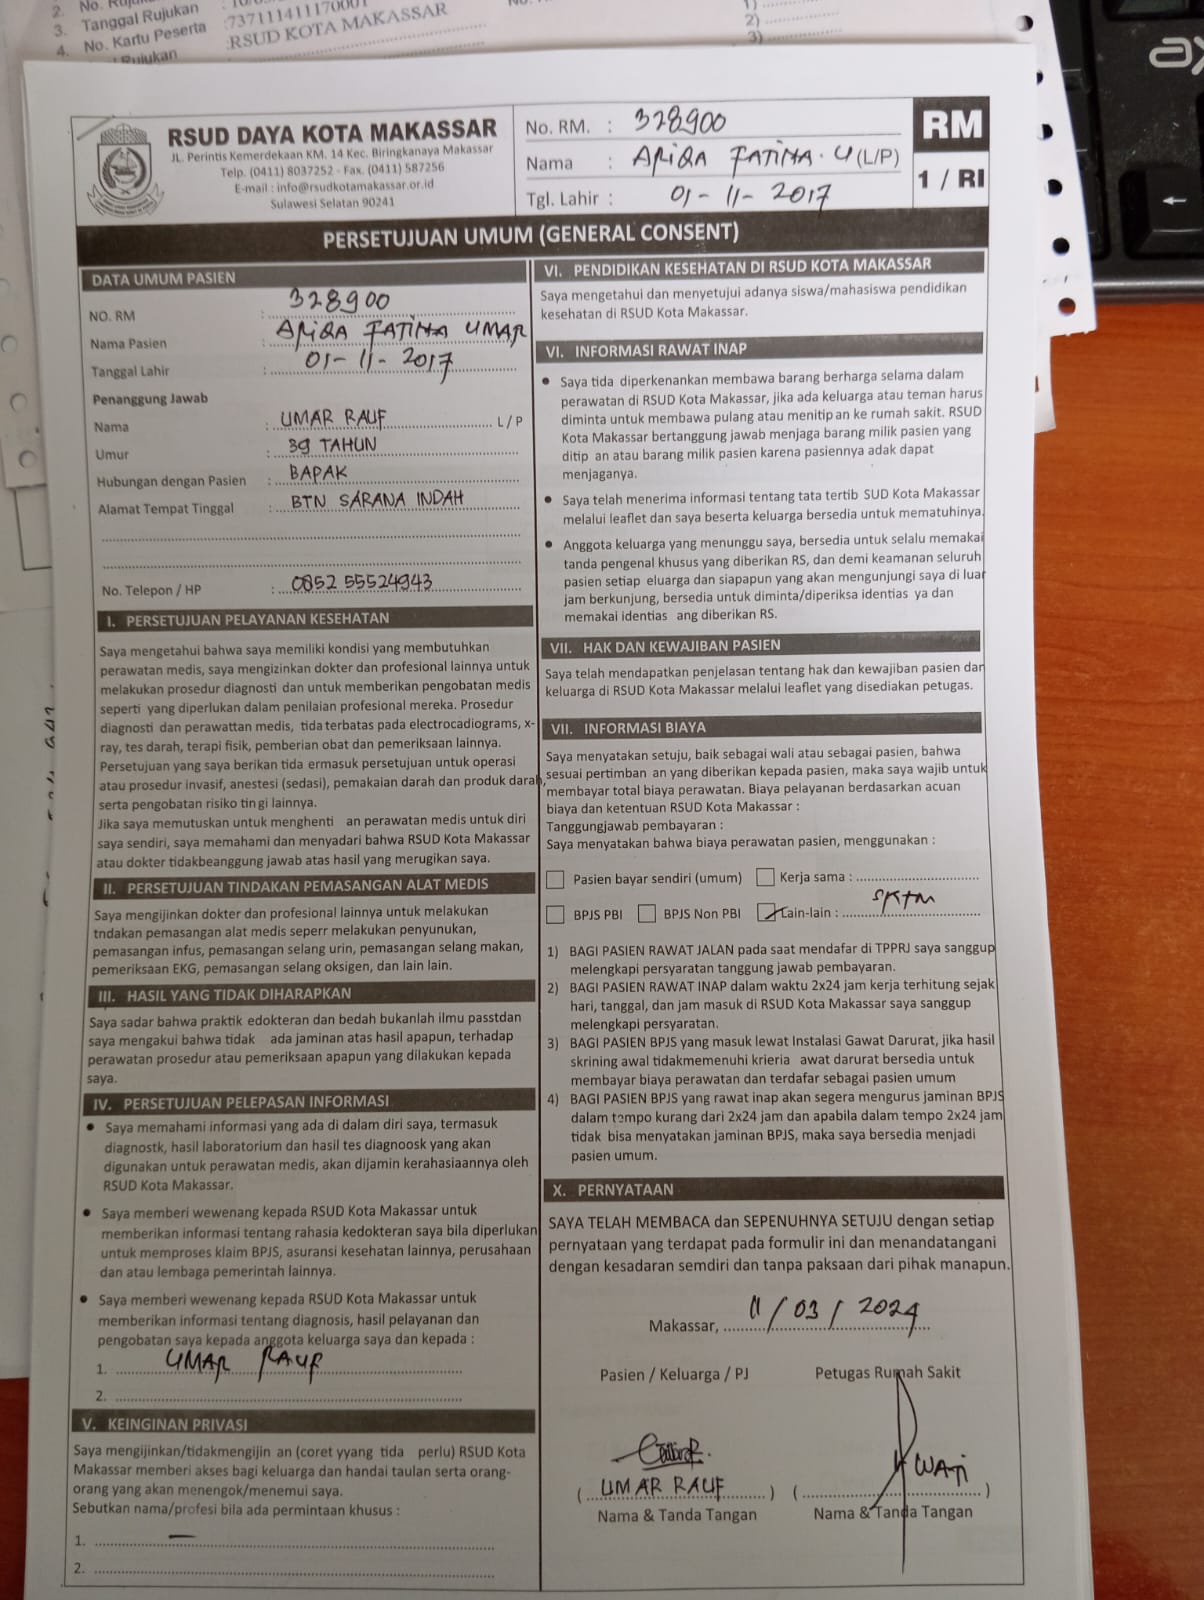 2. No.
3. Tanggal Rujukan
4. No. Kartu Peserta :737111411170001
:RSUD KOTA MAKASSAR
1)
2)
3)
RSUD DAYA KOTA MAKASSAR
JL. Perintis Kemerdekaan KM. 14 Kec. Biringkanaya Makassar
Telp. (0411) 8037252 - Fax. (0411) 587256
E-mail : info@rsudkotamakassar.or.id
Sulawesi Selatan 90241
No. RM. : 328900
Nama : FATIMA . U (L/P)
Tgl. Lahir : 01-11-2017
RM
1 / RI
PERSETUJUAN UMUM (GENERAL CONSENT)
DATA UMUM PASIEN
NO. RM : 328900
Nama Pasien : FATIMA UMAR
Tanggal Lahir : 01-11-2017
Penanggung Jawab
Nama : UMAR RAUF L / P
Umur : 39 TAHUN
Hubungan dengan Pasien : BAPAK
Alamat Tempat Tinggal : BTN SARANA INDAH
No. Telepon / HP : 0852 55524943
I. PERSETUJUAN PELAYANAN KESEHATAN
Saya mengetahui bahwa saya memiliki kondisi yang membutuhkan
perawatan medis, saya mengizinkan dokter dan profesional lainnya untuk
melakukan prosedur diagnosti dan untuk memberikan pengobatan medis
seperti yang diperlukan dalam penilaian profesional mereka. Prosedur
diagnosti dan perawattan medis, tida terbatas pada electrocadiograms, x-
ray, tes darah, terapi fisik, pemberian obat dan pemeriksaan lainnya.
Persetujuan yang saya berikan tida ermasuk persetujuan untuk operasi
atau prosedur invasif, anestesi (sedasi), pemakaian darah dan produk darah,
serta pengobatan risiko tin gi lainnya.
Jika saya memutuskan untuk menghenti an perawatan medis untuk diri
saya sendiri, saya memahami dan menyadari bahwa RSUD Kota Makassar
atau dokter tidakbeanggung jawab atas hasil yang merugikan saya.
II. PERSETUJUAN TINDAKAN PEMASANGAN ALAT MEDIS
Saya mengijinkan dokter dan profesional lainnya untuk melakukan
tndakan pemasangan alat medis seperr melakukan penyunukan,
pemasangan infus, pemasangan selang urin, pemasangan selang makan,
pemeriksaan EKG, pemasangan selang oksigen, dan lain lain.
III. HASIL YANG TIDAK DIHARAPKAN
Saya sadar bahwa praktik edokteran dan bedah bukanlah ilmu passtdan
saya mengakui bahwa tidak ada jaminan atas hasil apapun, terhadap
perawatan prosedur atau pemeriksaan apapun yang dilakukan kepada
saya.
IV. PERSETUJUAN PELEPASAN INFORMASI
• Saya memahami informasi yang ada di dalam diri saya, termasuk
diagnostk, hasil laboratorium dan hasil tes diagnoosk yang akan
digunakan untuk perawatan medis, akan dijamin kerahasiaannya oleh
RSUD Kota Makassar.
• Saya memberi wewenang kepada RSUD Kota Makassar untuk
memberikan informasi tentang rahasia kedokteran saya bila diperlukan
untuk memproses klaim BPJS, asuransi kesehatan lainnya, perusahaan
dan atau lembaga pemerintah lainnya.
• Saya memberi wewenang kepada RSUD Kota Makassar untuk
memberikan informasi tentang diagnosis, hasil pelayanan dan
pengobatan saya kepada anggota keluarga saya dan kepada :
1. UMAR RAUF
2.
V. KEINGINAN PRIVASI
Saya mengijinkan/tidakmengijin an (coret yyang tida perlu) RSUD Kota
Makassar memberi akses bagi keluarga dan handai taulan serta orang-
orang yang akan menengok/menemui saya.
Sebutkan nama/profesi bila ada permintaan khusus :
1. —
2.
VI. PENDIDIKAN KESEHATAN DI RSUD KOTA MAKASSAR
Saya mengetahui dan menyetujui adanya siswa/mahasiswa pendidikan
kesehatan di RSUD Kota Makassar.
VI. INFORMASI RAWAT INAP
• Saya tida diperkenankan membawa barang berharga selama dalam
perawatan di RSUD Kota Makassar, jika ada keluarga atau teman harus
diminta untuk membawa pulang atau menitip an ke rumah sakit. RSUD
Kota Makassar bertanggung jawab menjaga barang milik pasien yang
ditip an atau barang milik pasien karena pasiennya adak dapat
menjaganya.
• Saya telah menerima informasi tentang tata tertib SUD Kota Makassar
melalui leaflet dan saya beserta keluarga bersedia untuk mematuhinya.
• Anggota keluarga yang menunggu saya, bersedia untuk selalu memakai
tanda pengenal khusus yang diberikan RS, dan demi keamanan seluruh
pasien setiap eluarga dan siapapun yang akan mengunjungi saya di luar
jam berkunjung, bersedia untuk diminta/diperiksa identias ya dan
memakai identias ang diberikan RS.
VII. HAK DAN KEWAJIBAN PASIEN
Saya telah mendapatkan penjelasan tentang hak dan kewajiban pasien dan
keluarga di RSUD Kota Makassar melalui leaflet yang disediakan petugas.
VII. INFORMASI BIAYA
Saya menyatakan setuju, baik sebagai wali atau sebagai pasien, bahwa
sesuai pertimban an yang diberikan kepada pasien, maka saya wajib untuk
membayar total biaya perawatan. Biaya pelayanan berdasarkan acuan
biaya dan ketentuan RSUD Kota Makassar :
Tanggungjawab pembayaran :
Saya menyatakan bahwa biaya perawatan pasien, menggunakan :
Pasien bayar sendiri (umum) Kerja sama :
BPJS PBI BPJS Non PBI Lain-lain : SKTM
1) BAGI PASIEN RAWAT JALAN pada saat mendafar di TPPRJ saya sanggup
melengkapi persyaratan tanggung jawab pembayaran.
2) BAGI PASIEN RAWAT INAP dalam waktu 2x24 jam kerja terhitung sejak
hari, tanggal, dan jam masuk di RSUD Kota Makassar saya sanggup
melengkapi persyaratan.
3) BAGI PASIEN BPJS yang masuk lewat Instalasi Gawat Darurat, jika hasil
skrining awal tidakmemenuhi krieria awat darurat bersedia untuk
membayar biaya perawatan dan terdafar sebagai pasien umum
4) BAGI PASIEN BPJS yang rawat inap akan segera mengurus jaminan BPJS
dalam tempo kurang dari 2x24 jam dan apabila dalam tempo 2x24 jam
tidak bisa menyatakan jaminan BPJS, maka saya bersedia menjadi
pasien umum.
X. PERNYATAAN
SAYA TELAH MEMBACA dan SEPENUHNYA SETUJU dengan setiap
pernyataan yang terdapat pada formulir ini dan menandatangani
dengan kesadaran semdiri dan tanpa paksaan dari pihak manapun.
Makassar, 11/03/2024
Pasien / Keluarga / PJ Petugas Rumah Sakit
WATI
( UMAR RAUF ) ( )
Nama & Tanda Tangan Nama & Tanda Tangan